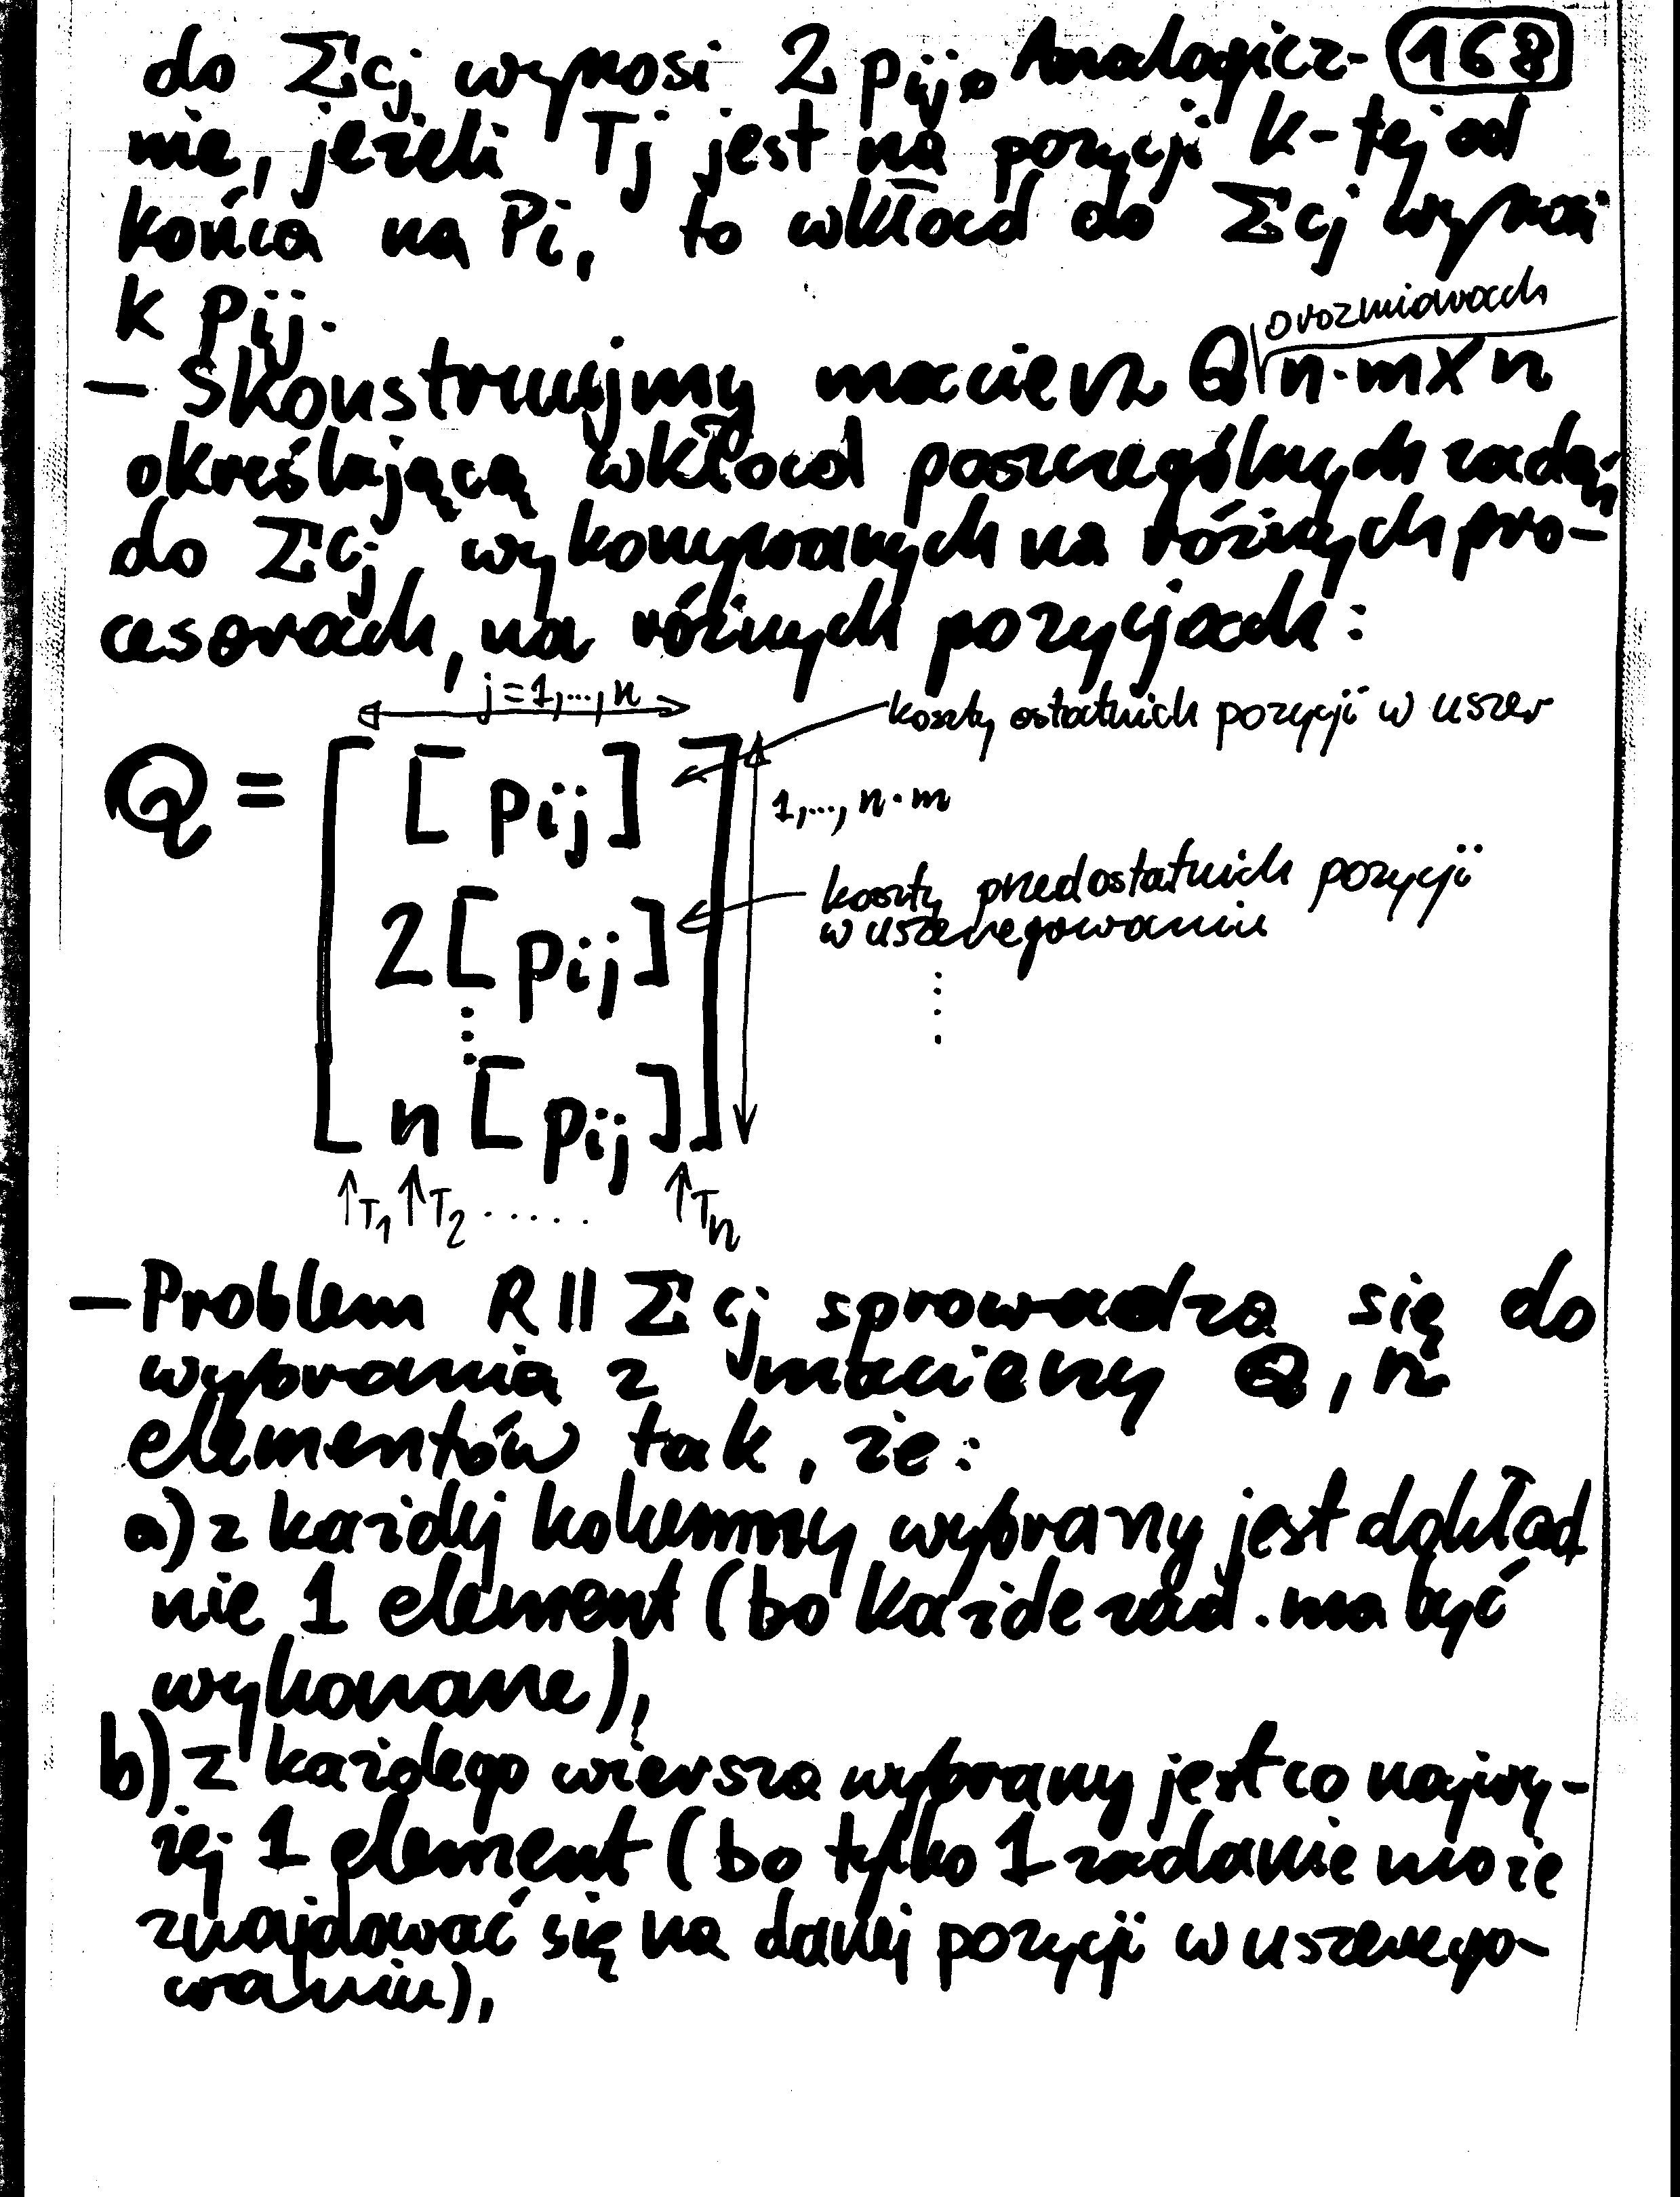 do Σcj wynosi 2 pij. Analogicz- 168
nie, jeżeli Tj jest na pozycji k-tej od
końca na Pi, to wkład do Σcj wynosi
k pij.
o rozmiarach
- Skonstruujmy macierz Q n·m×n
określającą wkład poszczególnych zadań
do Σcj wykonywanych na różnych pro-
cesorach, na różnych pozycjach:
j=1,...,n
koszty ostatnich pozycji w uszer
Q = [ [pij]
1,...,n·m
koszty przedostatnich pozycji
w uszeregowaniu
2[pij]
⋮
n[pij] ]
↑T1 ↑T2 ...... ↑Tn
- Problem R||Σcj sprowadza się do
wybrania z macierzy Q, n
elementów tak, że:
a) z każdej kolumny wybrany jest dokład
nie 1 element (bo każde zad. ma być
wykonane),
b) z każdego wiersza wybrany jest co najwy-
żej 1 element (bo tylko 1 zadanie może
znajdować się na danej pozycji w uszerego-
waniu),